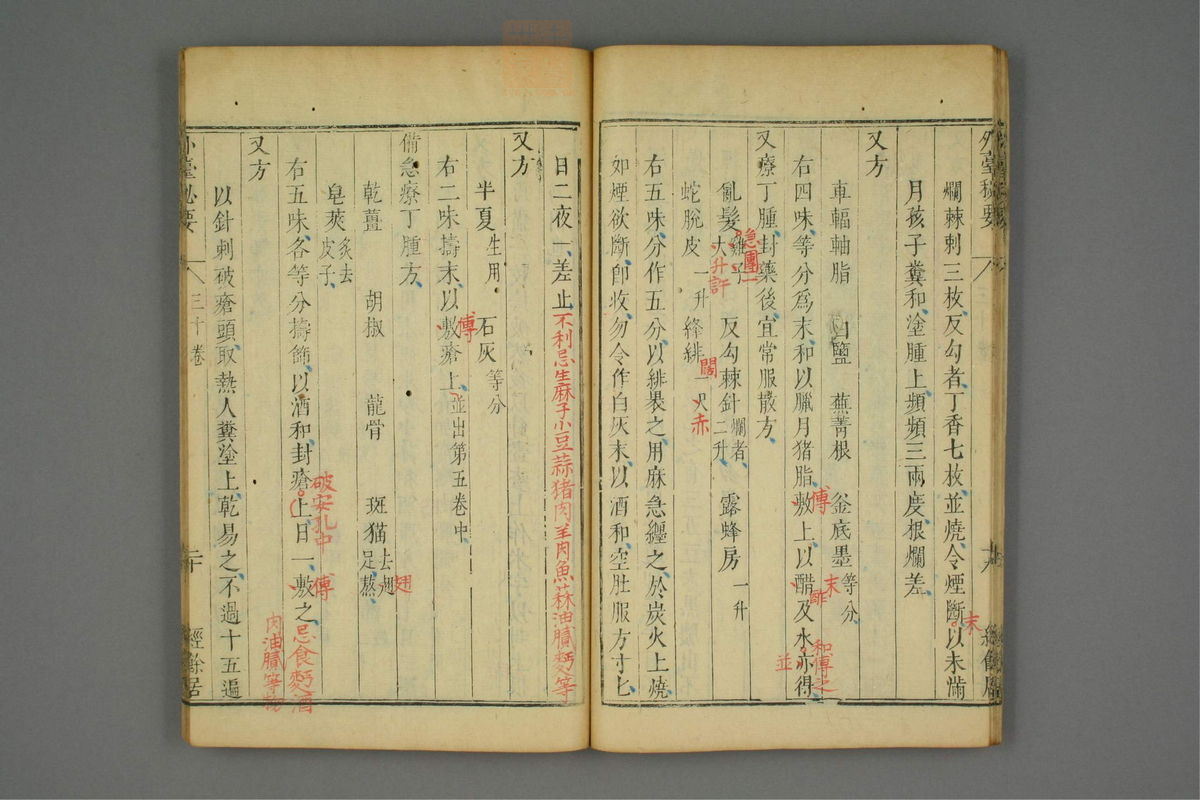 外臺秘要
爛棘刺三枚反勾者丁香七枚並燒令煙斷以未滿
末
月孩子糞和塗腫上頻頻三兩度根爛差
又方
車輻軸脂 白鹽 蕪菁根 釜底墨等分
末
右四味等分爲末和以臘月猪脂敷上以醋及水亦得
傅
酢
和傅之
並
又療丁腫封藥後宜常服散方
亂髮雞子大 反勾棘針爛者二升 露蜂房一升
團
升許
蛇脫皮一升 絳緋一尺
闊
赤
右五味分作五分以緋裹之用麻急纏之於炭火上燒
如煙欲斷卽收勿令作白灰末以酒和空肚服方寸匕
日二夜一差止
不利忌生麻子小豆蒜猪肉羊肉魚蔴油膩麫等
又方
半夏生用 石灰等分
右二味擣末以敷瘡上並出第五卷中
傅
備急療丁腫方
乾薑 胡椒 龍骨 斑猫去翅足熬
翅
皂莢炙去皮子
右五味各等分擣篩以酒和封瘡上日一敷之
破安孔中
傅
忌食麫酒
肉油膩等物
又方
以針刺破瘡頭取熱人糞塗上乾易之不過十五遍
外臺秘要
三十卷
二十
經餘居